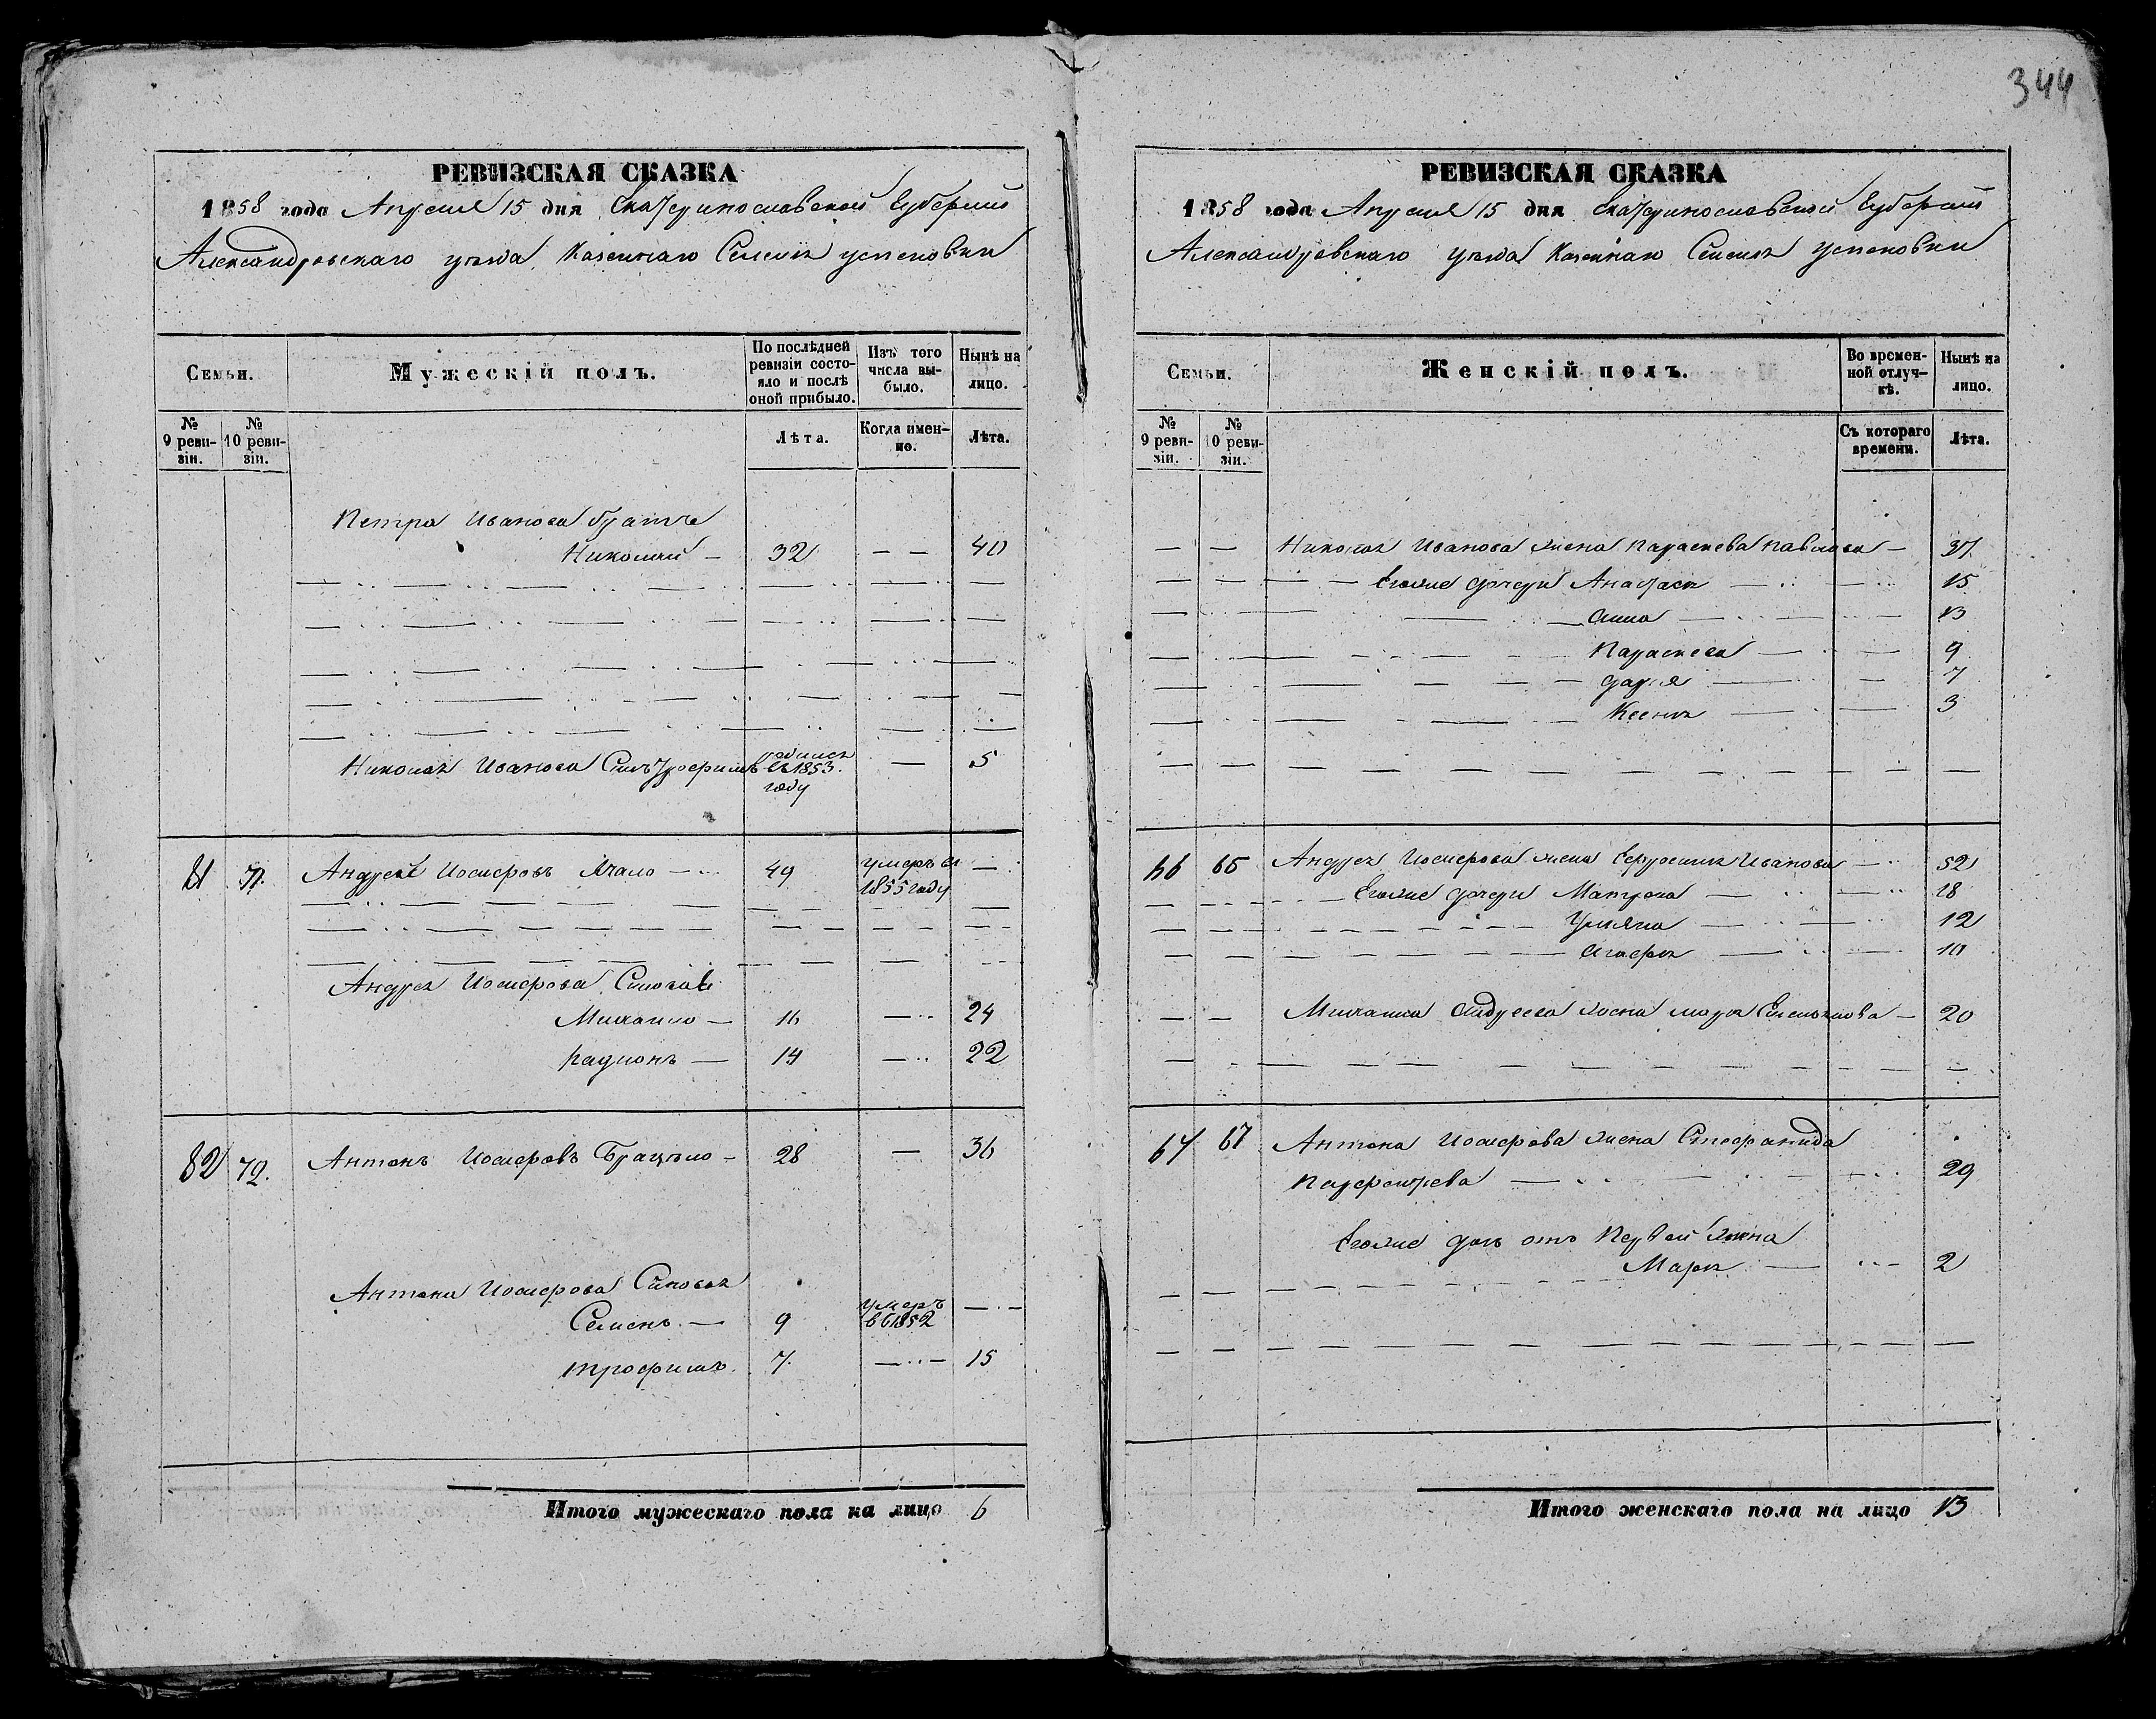 344
РЕВИЗСКАЯ СКАЗКА
1858 года Апреля 15 дня Екатеринославской Губернии
Александровскаго уезда Казеннаго Селения Успеновки
Семьи.
Мужескій полъ.
По послѣдней ревизіи состояло и послѣ оной прибыло.
Изъ того числа выбыло.
Нынѣ на лицо.
№ 9 ревизіи.
№ 10 ревизіи.
Лѣта.
Когда именно.
Лѣта.
Петра Иванова братъя
Николай — 32 — — 40
Николая Иванова Сынъ Трофимъ родился въ 1853 году — 5
81 71. Андрей Иосифовъ 49 умеръ въ 1855 году —
Андрея Иосифова Сыновья
Михаило — 16 — 24
Радионъ — 14 — 22
82 72. Антонъ Иосифовъ — 28 — 36
Антона Иосифова Сыновья
Семенъ. — 9 умеръ въ 1852 — -
трофимъ. 7. — 15
Итого мужескаго пола на лицо 6
РЕВИЗСКАЯ СКАЗКА
1858 года Апреля 15 дня Екатеринославской Губернии
Александровскаго уезда Казеннаго Селения Успеновки
Семьи.
Женскій полъ.
Во временной отлучкѣ.
Нынѣ на лицо.
№ 9 ревизіи.
№ 10 ревизіи.
Съ котораго времени.
Лѣта.
— — Николая Иванова жена Параскева Павлова — 37
Егоже дочери Анастасия — 15
Анна — 13
Параскева — 9
Дарья — 7
Ксения — 3
66 65 Андрея Иосифова жена Ефросиния Иванова — 52
Егоже дочери Матрона — 18
Ульяна — 12
Агафия — 10
— — Михаила Андреева жена Марья Емельянова — 20
67 67 Антона Иосифова жена Стефанида
— 29
Егоже дочь отъ Первой жены
Мария — 2
Итого женскаго пола на лицо 13